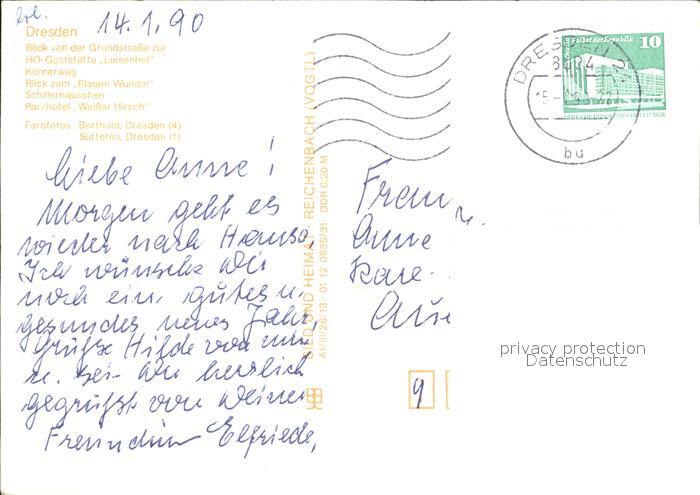 erl.
14.1.90
Dresden
Blick von der Grundstraße zur
HO-Gaststätte „Luisenhof"
Körnerweg
Blick zum „Blauen Wunder"
Schillerhäuschen
Parkhotel „Weißer Hirsch"
Farbfotos: Berthold, Dresden (4)
Sütterlin, Dresden (1)
Liebe Anne!
Morgen geht es
wieder nach Hause,
Ich wünsche Dir
noch ein gutes u.
gesundes neues Jahr,
Grüße Hilde von mir
u. sei Du herzlich
gegrüßt von Deiner
Freundin Elfriede,
BILD UND HEIMAT REICHENBACH (VOGTL)
A1/III/26/13 01 12 0835/31 DDR 0,20 M
DRESDEN
bu
Palast der Republik
10
Berlin
DEUTSCHE DEMOKRATISCHE REPUBLIK
Frau
Anne
9
privacy protection
Datenschutz